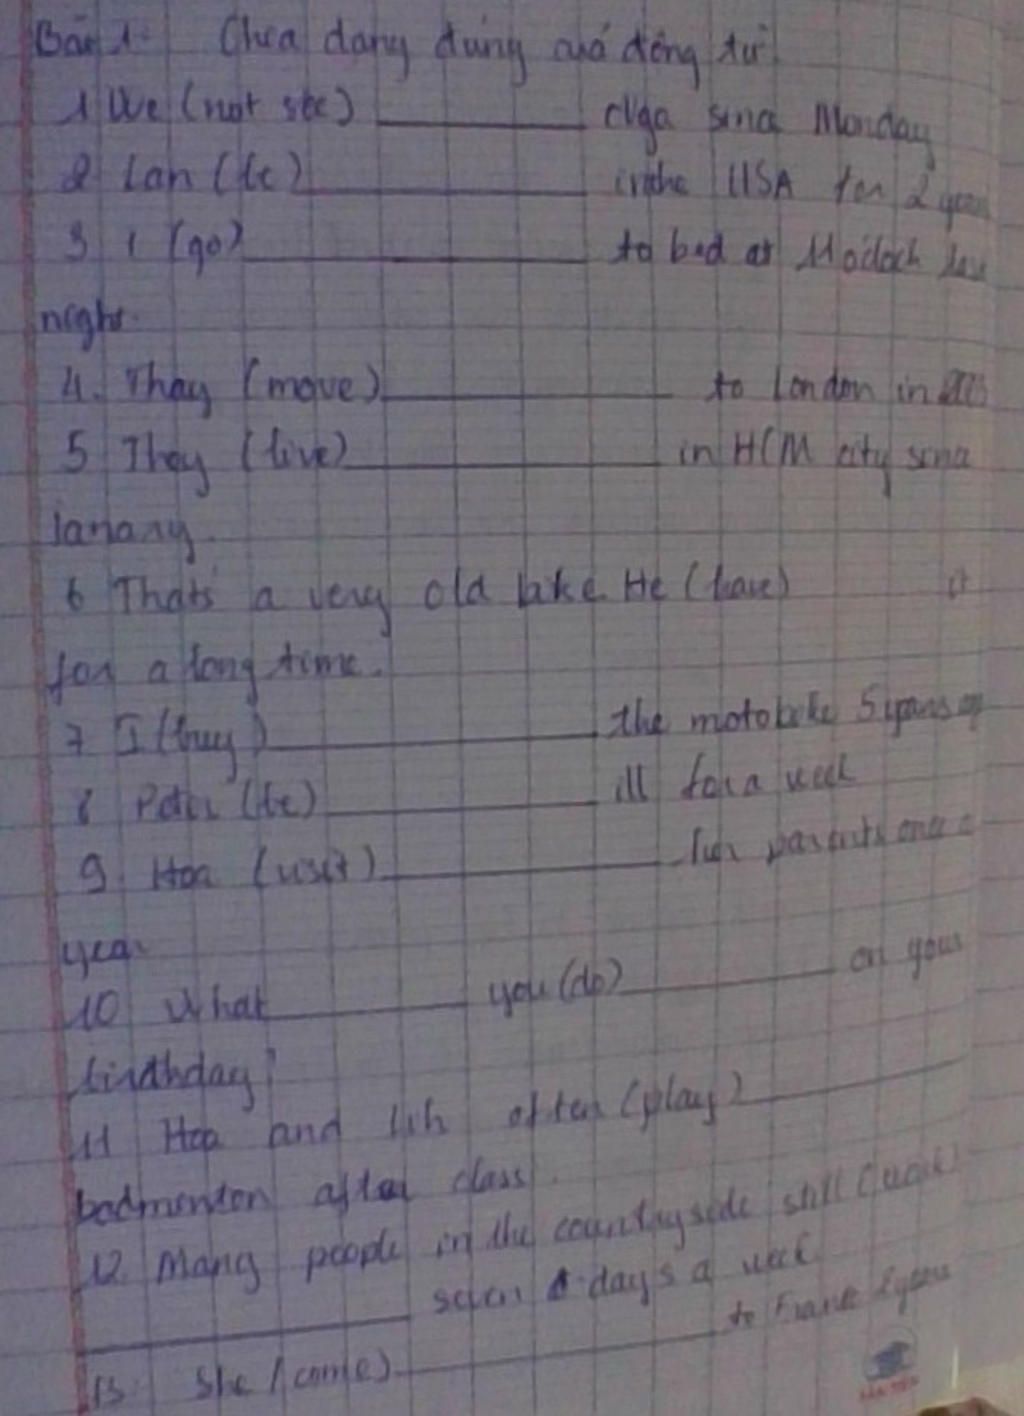 Bài 1: Chia dạng đúng của động từ
1 We (not see) ________ Nga since Monday
2 Lan (be) ________ in the USA for 2 years
3 I (go) ________ to bed at 11 o'clock last
night.
4. They (move) ________ to London in
5 They (live) ________ in HCM city since
January.
6 That's a very old bike. He (have) it
for a long time.
7 I (buy) ________ the motobike 5 years ago
8 Peter (be) ________ ill for a week
9. Hoa (visit) ________ her parents once a
year
10 What ________ you (do) ________ on your
birthday?
11 Hoa and often (play) ________
badminton after class.
12 Many people in the countryside still (work)
________ seven days a week
13. She (come) ________ to 2 years